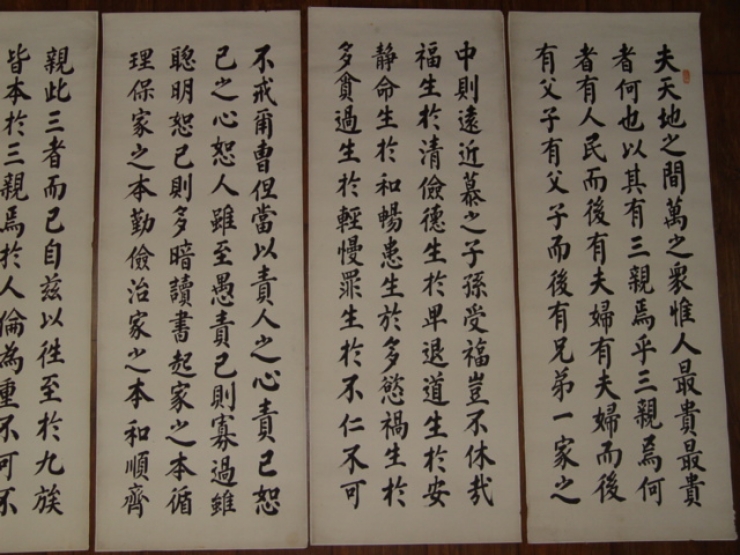 夫天地之間萬之衆惟人最貴最貴
者何也以其有三親焉乎三親為何
者有人民而後有夫婦有夫婦而後
有父子有父子而後有兄弟一家之
中則遠近慕之子孫受福豈不休哉
福生於清儉德生於卑退道生於安
靜命生於和暢患生於多慾禍生於
多貪過生於輕慢罪生於不仁不可
不戒爾曹但當以責人之心責己恕
己之心恕人雖至愚責己則寡過雖
聰明恕己則多暗讀書起家之本循
理保家之本勤儉治家之本和順齊
親此三者而已自茲以往至於九族
皆本於三親焉於人倫為重不可不